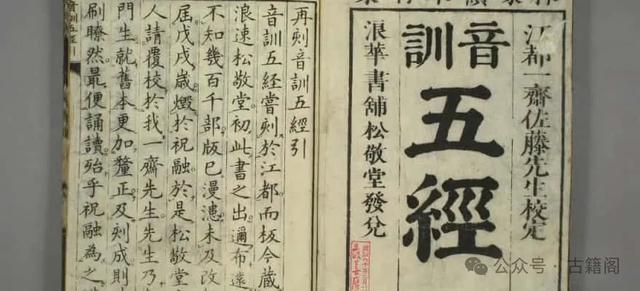 江都一齋佐藤先生校定
音訓
五經
浪華書舖松敬堂發兌
再刻音訓五經引
音訓五經嘗刻於江都而板今藏
浪速松敬堂初此書之出邇布遠
不知幾百千部版已漫漶未及改
屆戊戌歲燬於祝融於是松敬堂
人請覆校於我一齋先生先生乃
門生就舊本更加釐正及刻成則
刷瞭然最便誦讀殆乎祝融為之
公众号·古籍阁